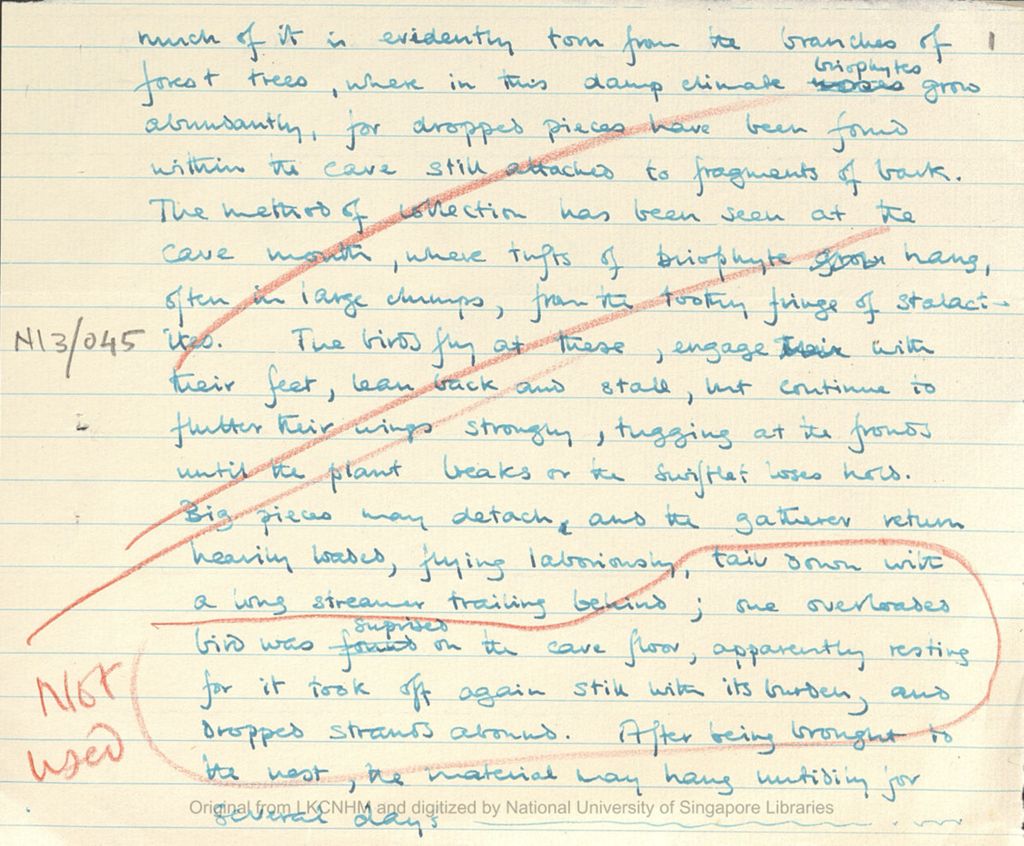 much of it is evidently torn from the branches of 1
forest trees, where in this damp climate briophytes grow
abundantly, for dropped pieces have been found
within the cave still attached to fragments of bark.
The method of collection has been seen at the
cave mouth, where tufts of briophyte grow hang,
often in large clumps, from the toothy fringe of stalact-
N13/045 ites. The birds fly at these, engage their with
their feet, lean back and stall, but continue to
flutter their wings strongly, tugging at the fronds
until the plant beaks or the swiftlet loses hold.
Big pieces may detach, and the gatherer return
heavily loaded, flying laboriously, tail down with
a long streamer trailing behind; one overloaded
bird was found suprised on the cave floor, apparently resting
for it took off again still with its burden, and
dropped strands abound. After being brought to
the nest, the material may hang untidily for
several days
Not
used
Original from LKCNHM and digitized by National University of Singapore Libraries